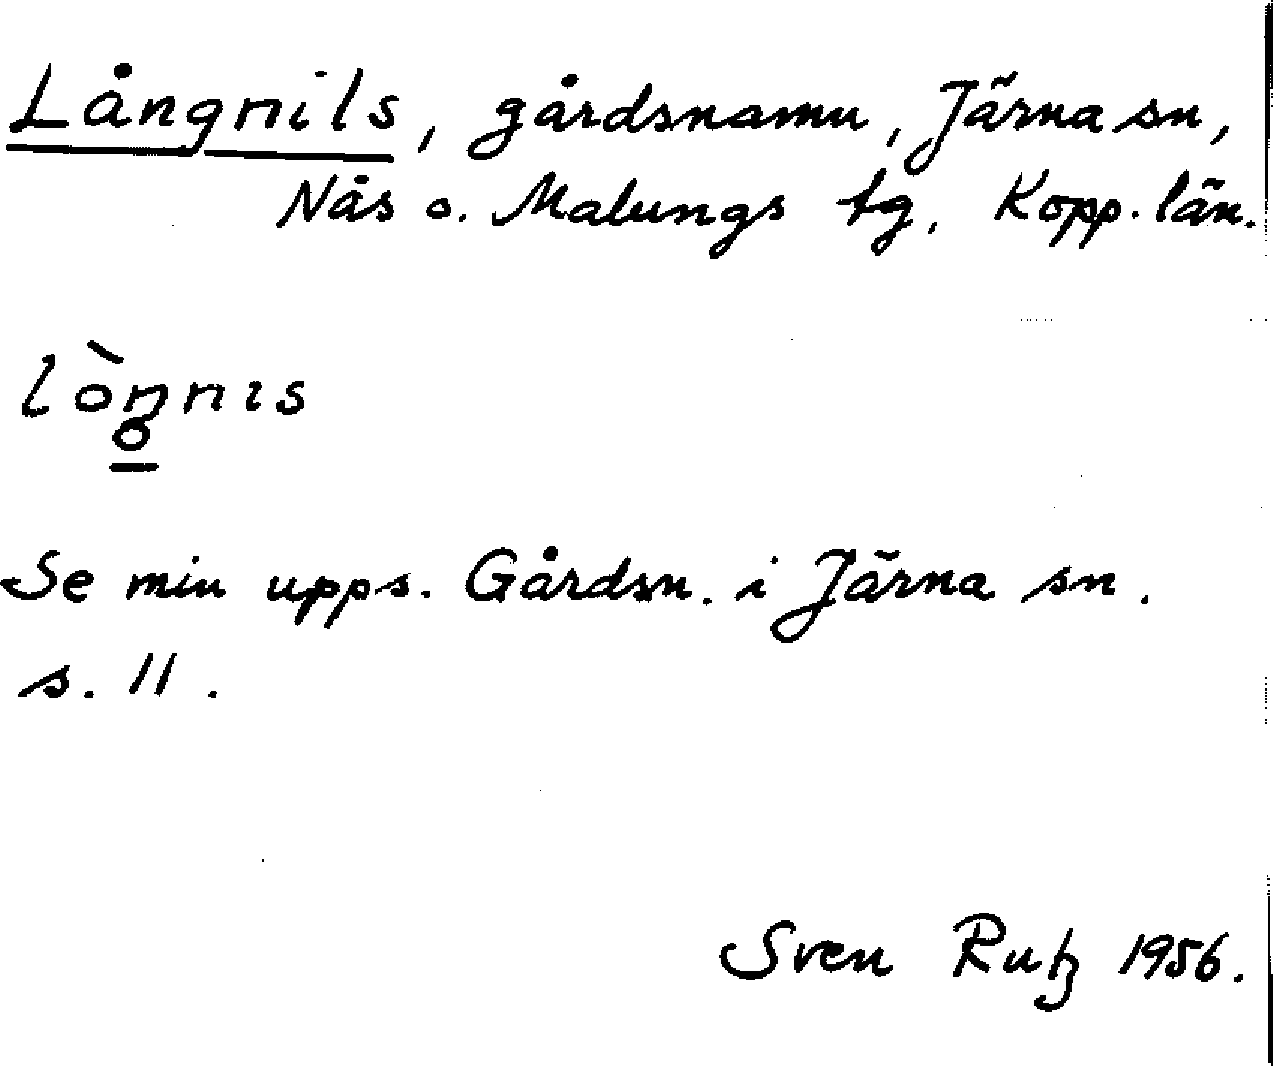 Långnils, gårdsnamn, Järna sn,
Nås o. Malungs tg, Kopp. län.
lòŋnɪs
Se min upps. Gårdsn. i Järna sn.
s. 11.
Sven Rutz 1956.